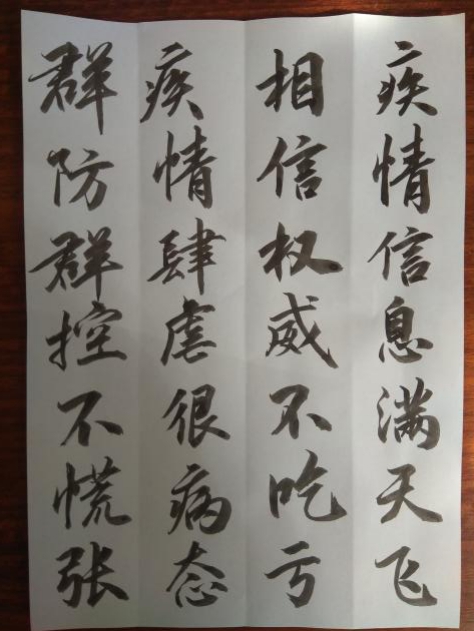 疾情信息满天飞
相信权威不吃亏
疾情肆虐很病态
群防群控不慌张